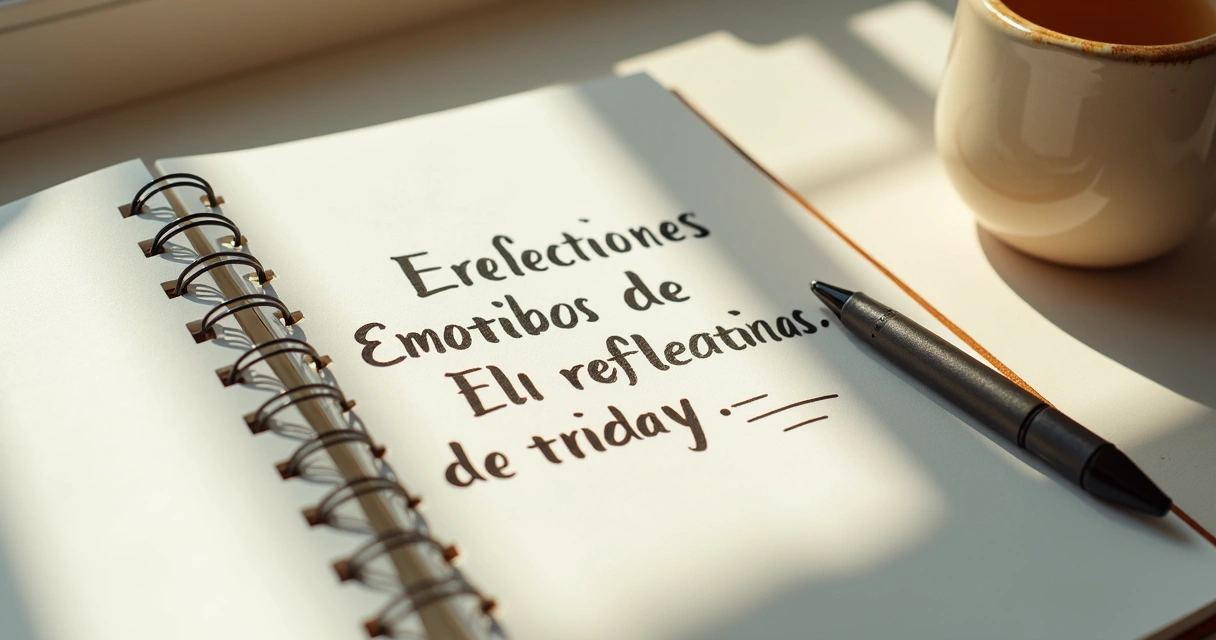 Erefectiones
Emotibos de
Eli refleatinas.
de triday.